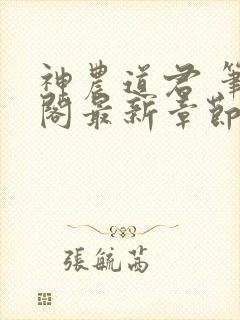 神農道君 筆
閣最新章節
張毓茜